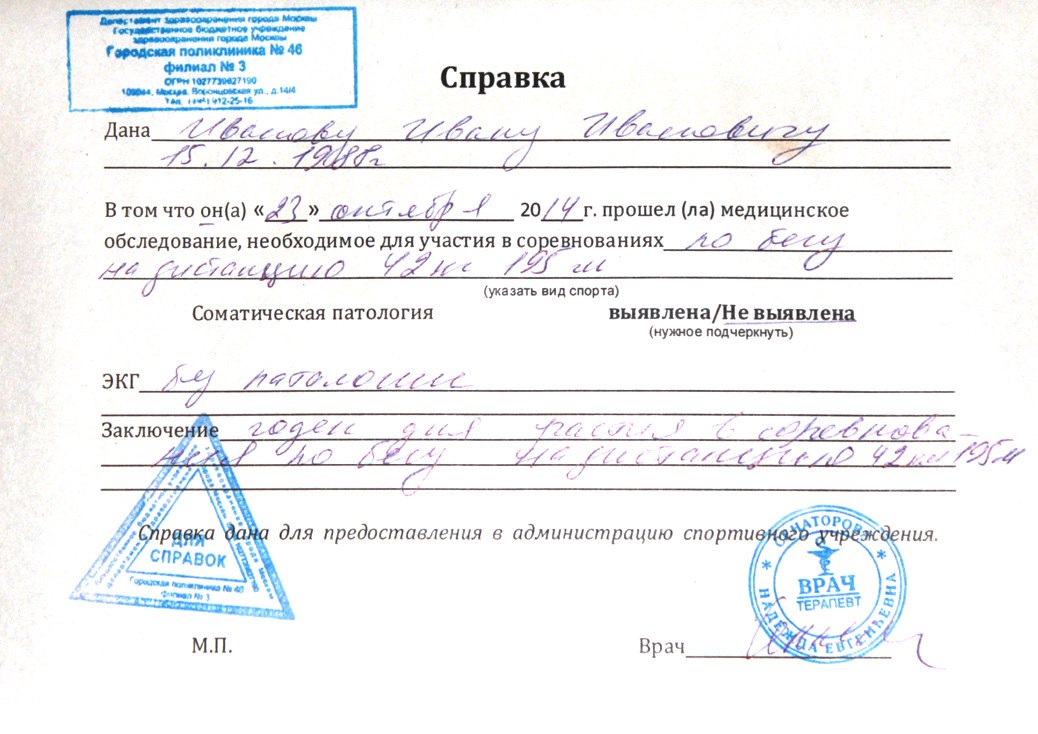 Департамент здравоохранения города Москвы
Государственное бюджетное учреждение
здравоохранения города Москвы
Городская поликлиника № 46
филиал № 3
ОГРН 1027739827190
109044, Москва, Воронцовская ул., д.14/4
912-25-16
Справка
Дана Иванову Ивану Ивановичу
15.12.1988г
В том что он(а) «23» октября 2014г. прошел (ла) медицинское
обследование, необходимое для участия в соревнованиях по бегу
на дистанцию 42км 195 м
(указать вид спорта)
Соматическая патология выявлена/Не выявлена
(нужное подчеркнуть)
ЭКГ без патологии
Заключение годен для соревнова-
ния по бегу на дистанцию 42км 195м
Справка дана для предоставления в администрацию спортивного учреждения.
ДЛЯ
СПРАВОК
Городская поликлиника № 46
Филиал № 3
ВРАЧ
ТЕРАПЕВТ
НАДЕЖДА ЕВГЕНЬЕВНА
М.П. Врач